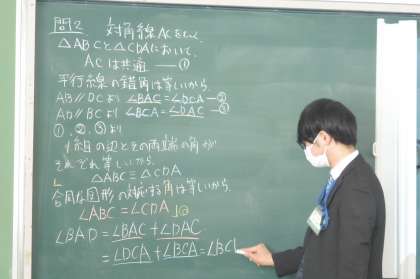 問2 対角線ACをひく。
△ABCと△CDAにおいて、
ACは共通 ―①
平行線の錯角は等しいから
AB//DCより ∠BAC=∠DCA ―②
AD//BCより ∠BCA=∠DAC ―③
①,②,③より
1組の辺とその両端の角が
それぞれ等しいから、
△ABC≡△CDA
合同な図形の対応する角は等しいから、
∠ABC=∠CDA
∠BAD=∠BAC+∠DAC
=∠DCA+∠BCA=∠BC